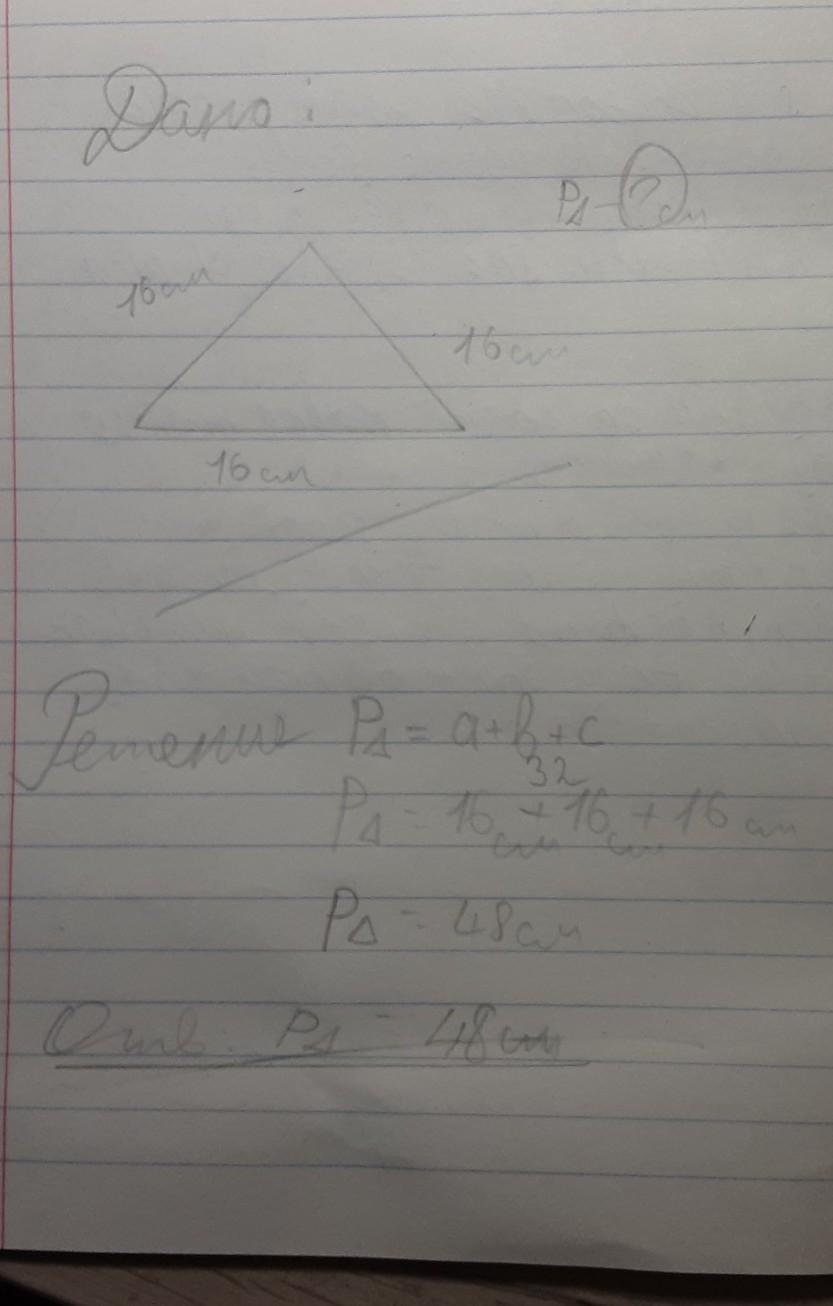 Дано:
P△ - ? см
16 см
16 см
16 см
Решение P△ = a + b + c
32
P△ = 16 см + 16 см + 16 см
P△ = 48 см
Отв. P△ = 48 см